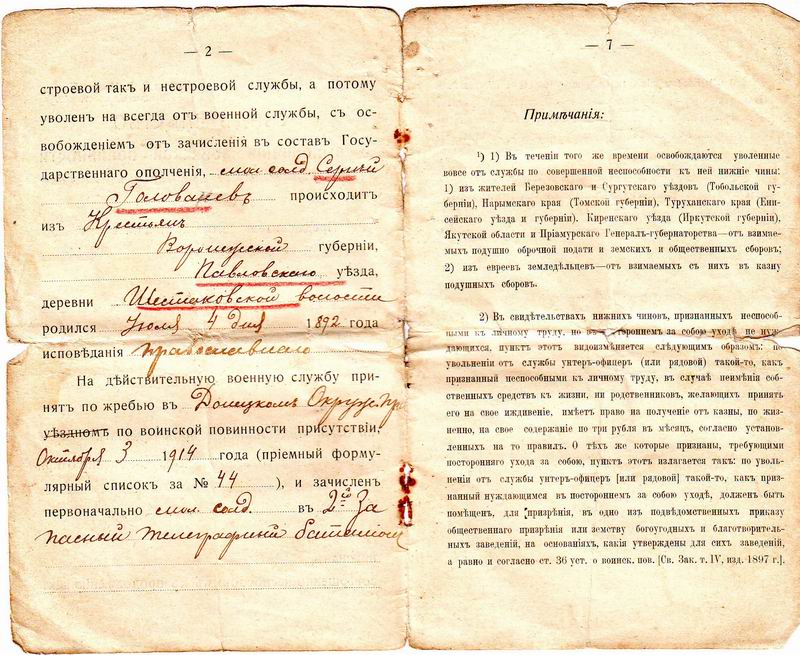 — 2 —
строевой такъ и нестроевой службы, а потому
уволен на всегда от военной службы, съ ос-
вобождениемъ отъ зачисленiя въ состав Госу-
дарственнаго ополченiя, ... солд. Сергѣй
Голованевъ происходитъ
изъ Крестьянъ
Воронежской губернiи,
Павловскаго уѣзда,
деревни Шестаковской волости
родился Iюля 4 дня 1892 года
исповѣданiя православнаго
На дѣйствительную военную службу при-
нятъ по жребью въ Донецкомъ Окруж. пр
уѣздномъ по воинской повинности присутствiи,
Октября 3 1914 года (прiемный форму-
лярный списокъ за № 44 ), и зачисленъ
первоначально солд. въ 2й За
пасный телеграфный баталiонъ
— 7 —
Примѣчанiя:
¹) 1) Въ теченiи того же времени освобождаются уволенные
вовсе отъ службы по совершенной неспособности къ ней нижнiе чины:
1) изъ жителей Березовскаго и Сургутскаго уѣздовъ (Тобольской гу-
бернiи), Нарымскаго края (Томской губернiи), Туруханскаго края (Ени-
сейскаго уѣзда и губернiи). Киренскаго уѣзда (Иркутской губернiи),
Якутской области и Прiамурскаго Генералъ-губернаторства—отъ взимае-
мыхъ подушно оброчной подати и земскихъ и общественныхъ сборовъ;
2) изъ евреевъ земледѣльцевъ—отъ взимаемыхъ съ нихъ въ казну
подушныхъ сборовъ.
2) Въ свидѣтельствахъ нижнихъ чиновъ, признанныхъ неспособ-
ными къ личному труду, но въ постороннемъ за собою уходѣ не нуж-
дающихся, пунктъ этотъ видоизмѣняется слѣдующимъ образомъ: по
увольненiи отъ службы унтеръ-офицеръ (или рядовой) такой-то, какъ
признанный неспособнымъ къ личному труду, въ случаѣ неимѣнiя соб-
ственныхъ средствъ къ жизни, ни родственниковъ, желающихъ принять
его на свое иждивенiе, имѣетъ право на полученiе отъ казны, по жиз-
ненно, на свое содержанiе по три рубля въ мѣсяцъ, согласно установ-
ленныхъ на то правилъ. О тѣхъ же которые признаны, требующими
посторонняго ухода за собою, пунктъ этотъ излагается такъ: по уволь-
ненiи отъ службы унтеръ-офицеръ [или рядовой] такой-то, какъ приз-
нанный нуждающимся въ постороннемъ за собою уходѣ, долженъ быть
помѣщенъ, для призрѣнiя, въ одно изъ подвѣдомственныхъ приказу
общественнаго призрѣнiя или земству богоугодныхъ и благотворитель-
ныхъ заведенiй, на основанiяхъ, какiя утверждены для сихъ заведенiй,
а равно и согласно ст. 36 уст. о воинск. пов. [Св. Зак. т. IV, изд. 1897 г.].